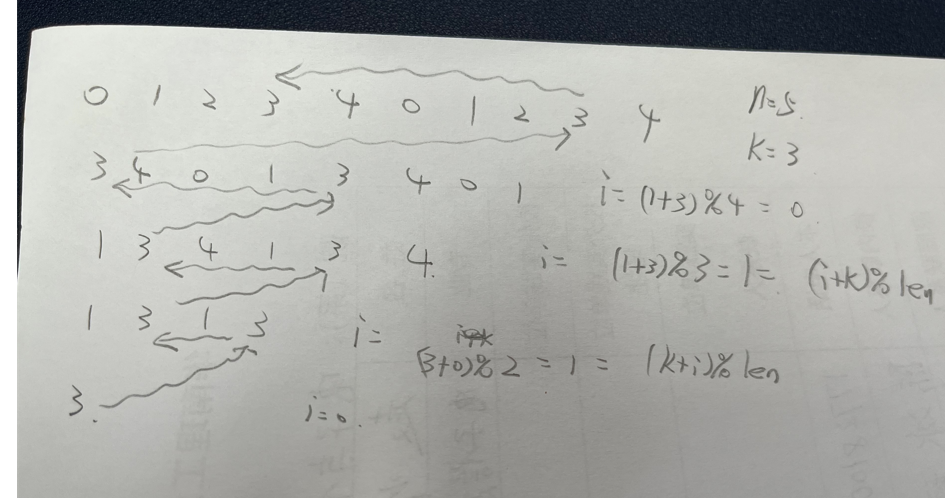 0 1 2 3 4 0 1 2 3 4 n=5.
k=3
3 4 0 1 3 4 0 1 i=(1+3)%4=0.
1 3 4 1 3 4. i= (1+3)%3=1= (i+k)%len
1 3 1 3 i= (3+0)%2=1= (k+i)%len
3. i=0.